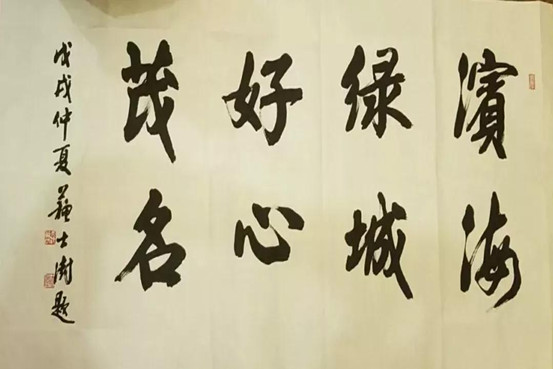 濱海
绿城
好心
茂名
戊戌仲夏苏士澍题